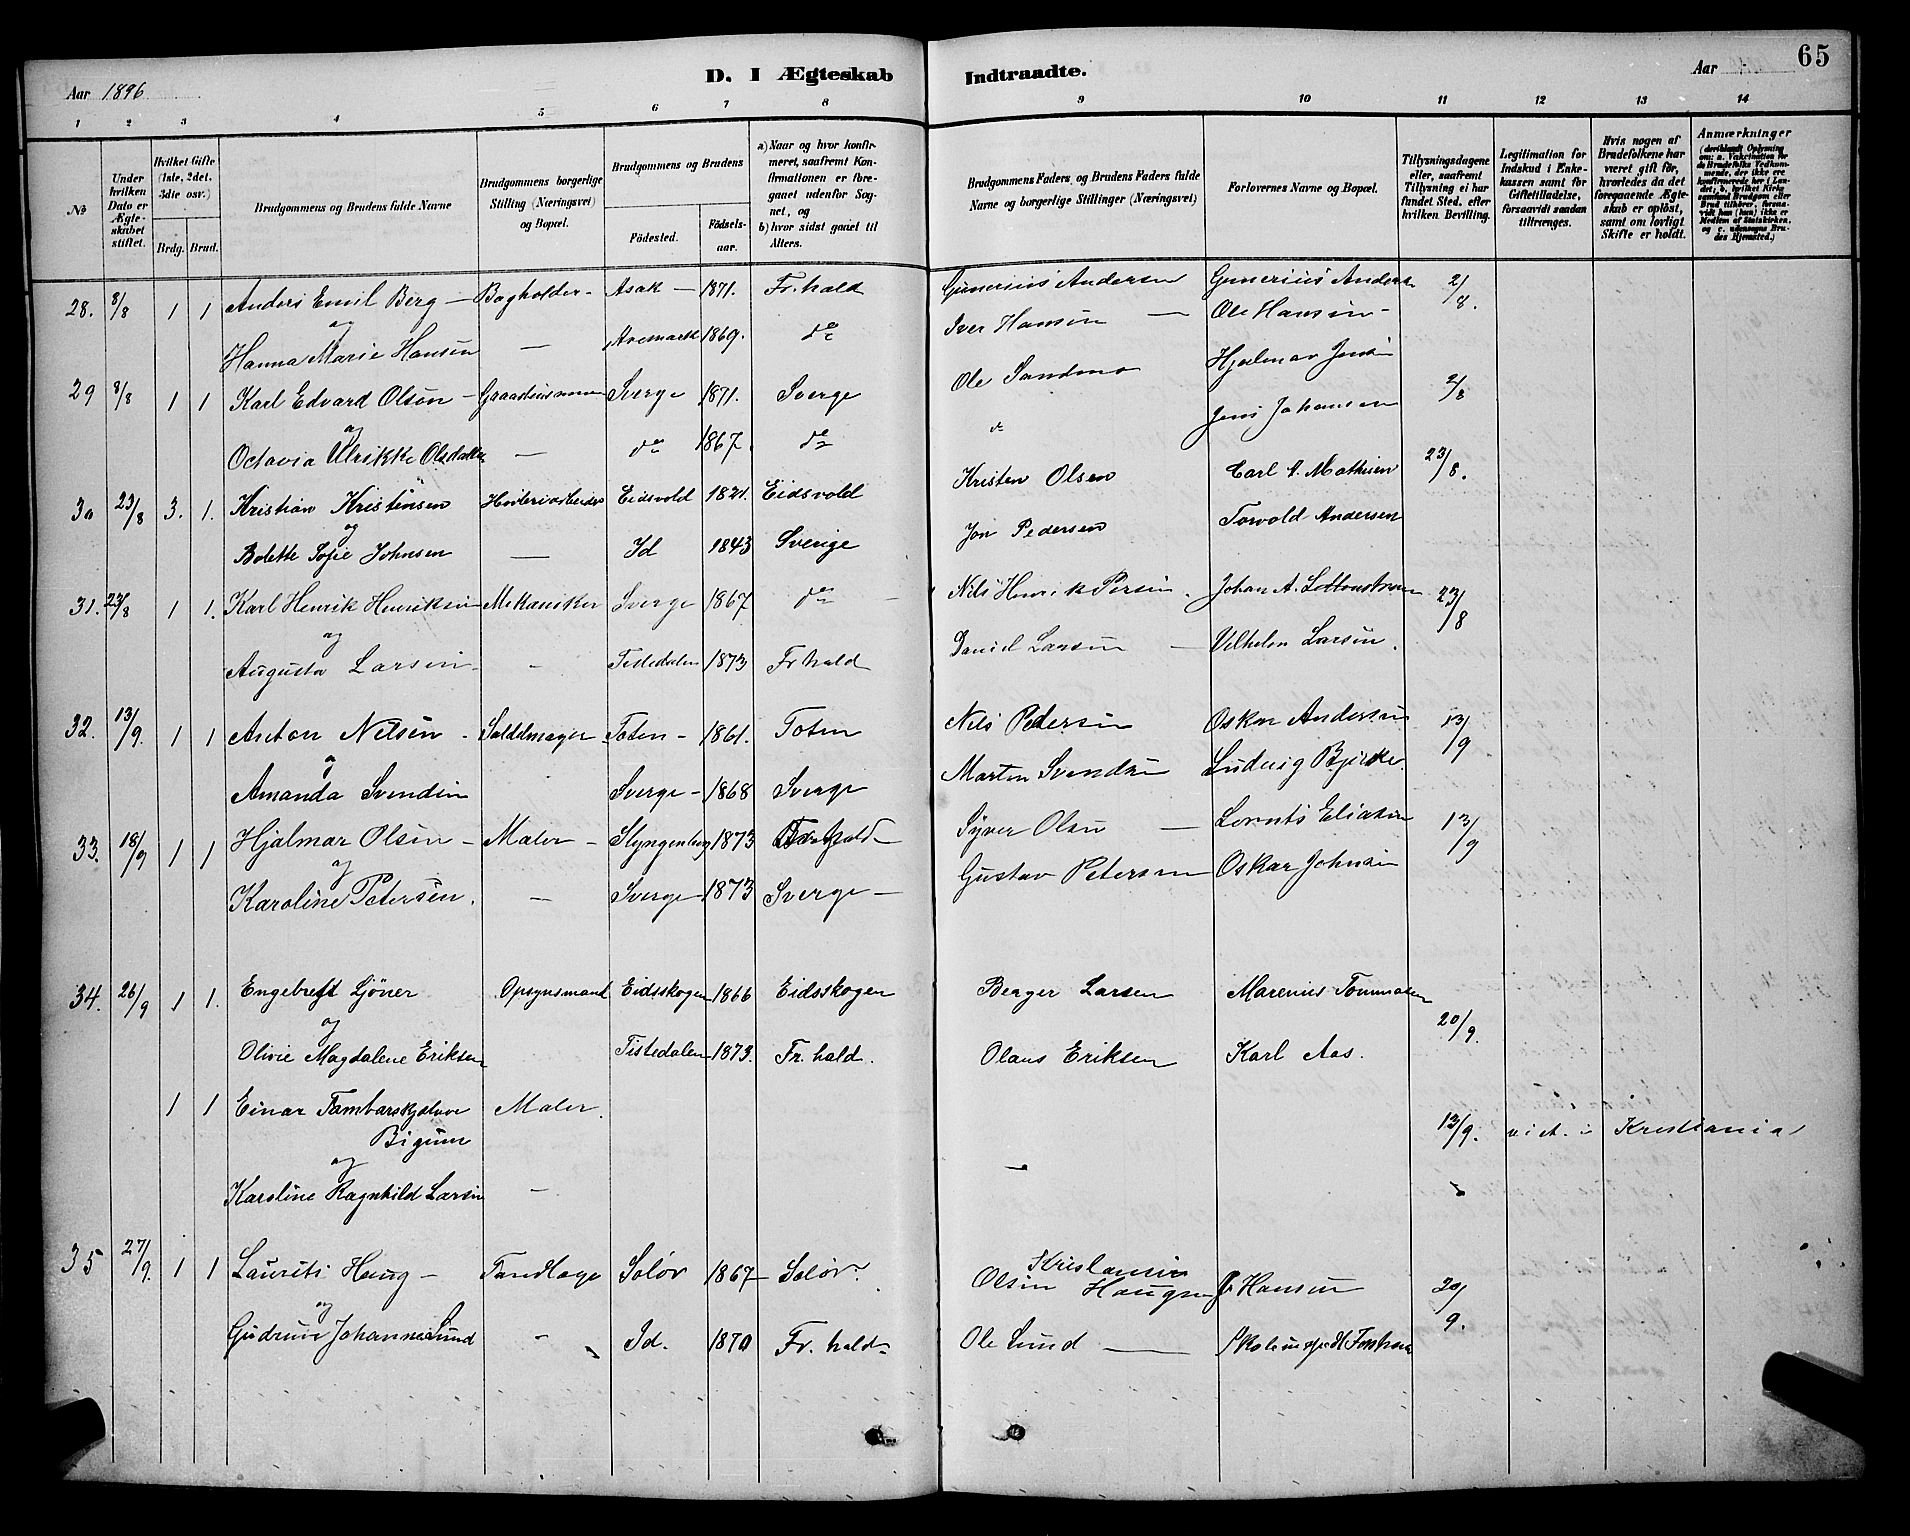 65
D. I Ægteskab Indtraadte.
Aar 1896 Aar
1 2 3 4 5 6 7 8 9 10 11 12 13 14
№
Under hvilken Dato er Ægteskabet stiftet.
Hvilket Gifte (1ste, 2det, 3die osv.)
Brdg. Brud.
Brudgommens og Brudens fulde Navne
Brudgommens borgerlige Stilling (Næringsvei) og Bopæl.
Brudgommens og Brudens
Födested. Födselsaar.
a) Naar og hvor konfirmeret, saafremt Konfirmationen er foregaaet udenfor Sognet, og
b) hvor sidst gaaet til Alters.
Brudgommens Faders og Brudens Faders fulde Navne og borgerlige Stillinger (Næringsvei)
Forlovernes Navne og Bopæl.
Tillysningsdagene eller, saafremt Tillysning ei har fundet Sted, efter hvilken Bevilling.
Legitimation for Indskud i Enkekassen samt for Giftetilladelse, forsaavidt saadan tiltrænges.
Hvis nogen af Brudefolkene har været gift før, hvorledes da det foregaaende Ægteskab er oplöst, samt om lovligt Skifte er holdt.
Anmærkninger
28. 8/8 1 1 Anders Emil Berg – Bogholder – Asak – 1871. Fr.hald Gunerius Andersen Gunerius Anders 2/8.
og
Hanna Marie Hansen — Aremark 1869. do Iver Hansen — Ole Hansen –
29 8/8 1 1 Karl Edvard Olsen – Sverge 1871. Sverge Ole Sandmo Hjalmar Jensen 2/8
og
Octavia Ulrikke Olsdatter — do 1867. do do Jens Johansen
30 23/8 3. 1. Kristian Kristensen Eidsvold 1821. Eidsvold Kristen Olsen Carl A. Mathisen 23/8.
og
Bolette Sofie Johnsen — Id 1843 Sverige Jon Pedersen Torvold Andersen
31. 23/8 1 1. Karl Henrik Henriksen Mekaniker Sverge 1867 do Nils Henrik Persen Johan A. 23/8
og
Augusta Larsen – Tistedalen 1873 Fr hald Daniel Larsen — Vilhelm Larsen.
32. 13/9. 1 1 Anton Nilsen – Saddelmager Toten – 1861. Toten Nils Pedersen Oskar Andersen 13/9
og
Amanda Svendsen Sverge – 1868 Sverge Martin Svendsen Ludvig Bjerke.
33. 18/9 1 1 Hjalmar Olsen – Maler – 1873 Fr hald Syver Olsen — Lornts Eliasen 13/9
og
Karoline Petersen. — Sverge – 1873 Sverge – Gustav Petersen Oskar Johnsen
34. 26/9 1 1. Engebret Sjöner Opsynsmand Eidsskogen 1866 Eidsskogen Berger Larsen Marenius Tommasen 20/9.
og
Olivie Magdalene Eriksen Tistedalen 1873. Fr. hald. Olaus Eriksen Karl Aas.
1 1 Einar Tambarskjelver Maler.
Bigum 13/9. viet i Kristiania
og –
Karoline Ragnhild Larsen –
35 27/9. 1 1 Laurits Haug – Tandlæge Solör 1867 – Solör. Kristiansen
Olsen Haugen J. Hansen 20/9.
og
Gudrun Johanne Lund – Id. 1870 Fr. hald. Ole Lund —